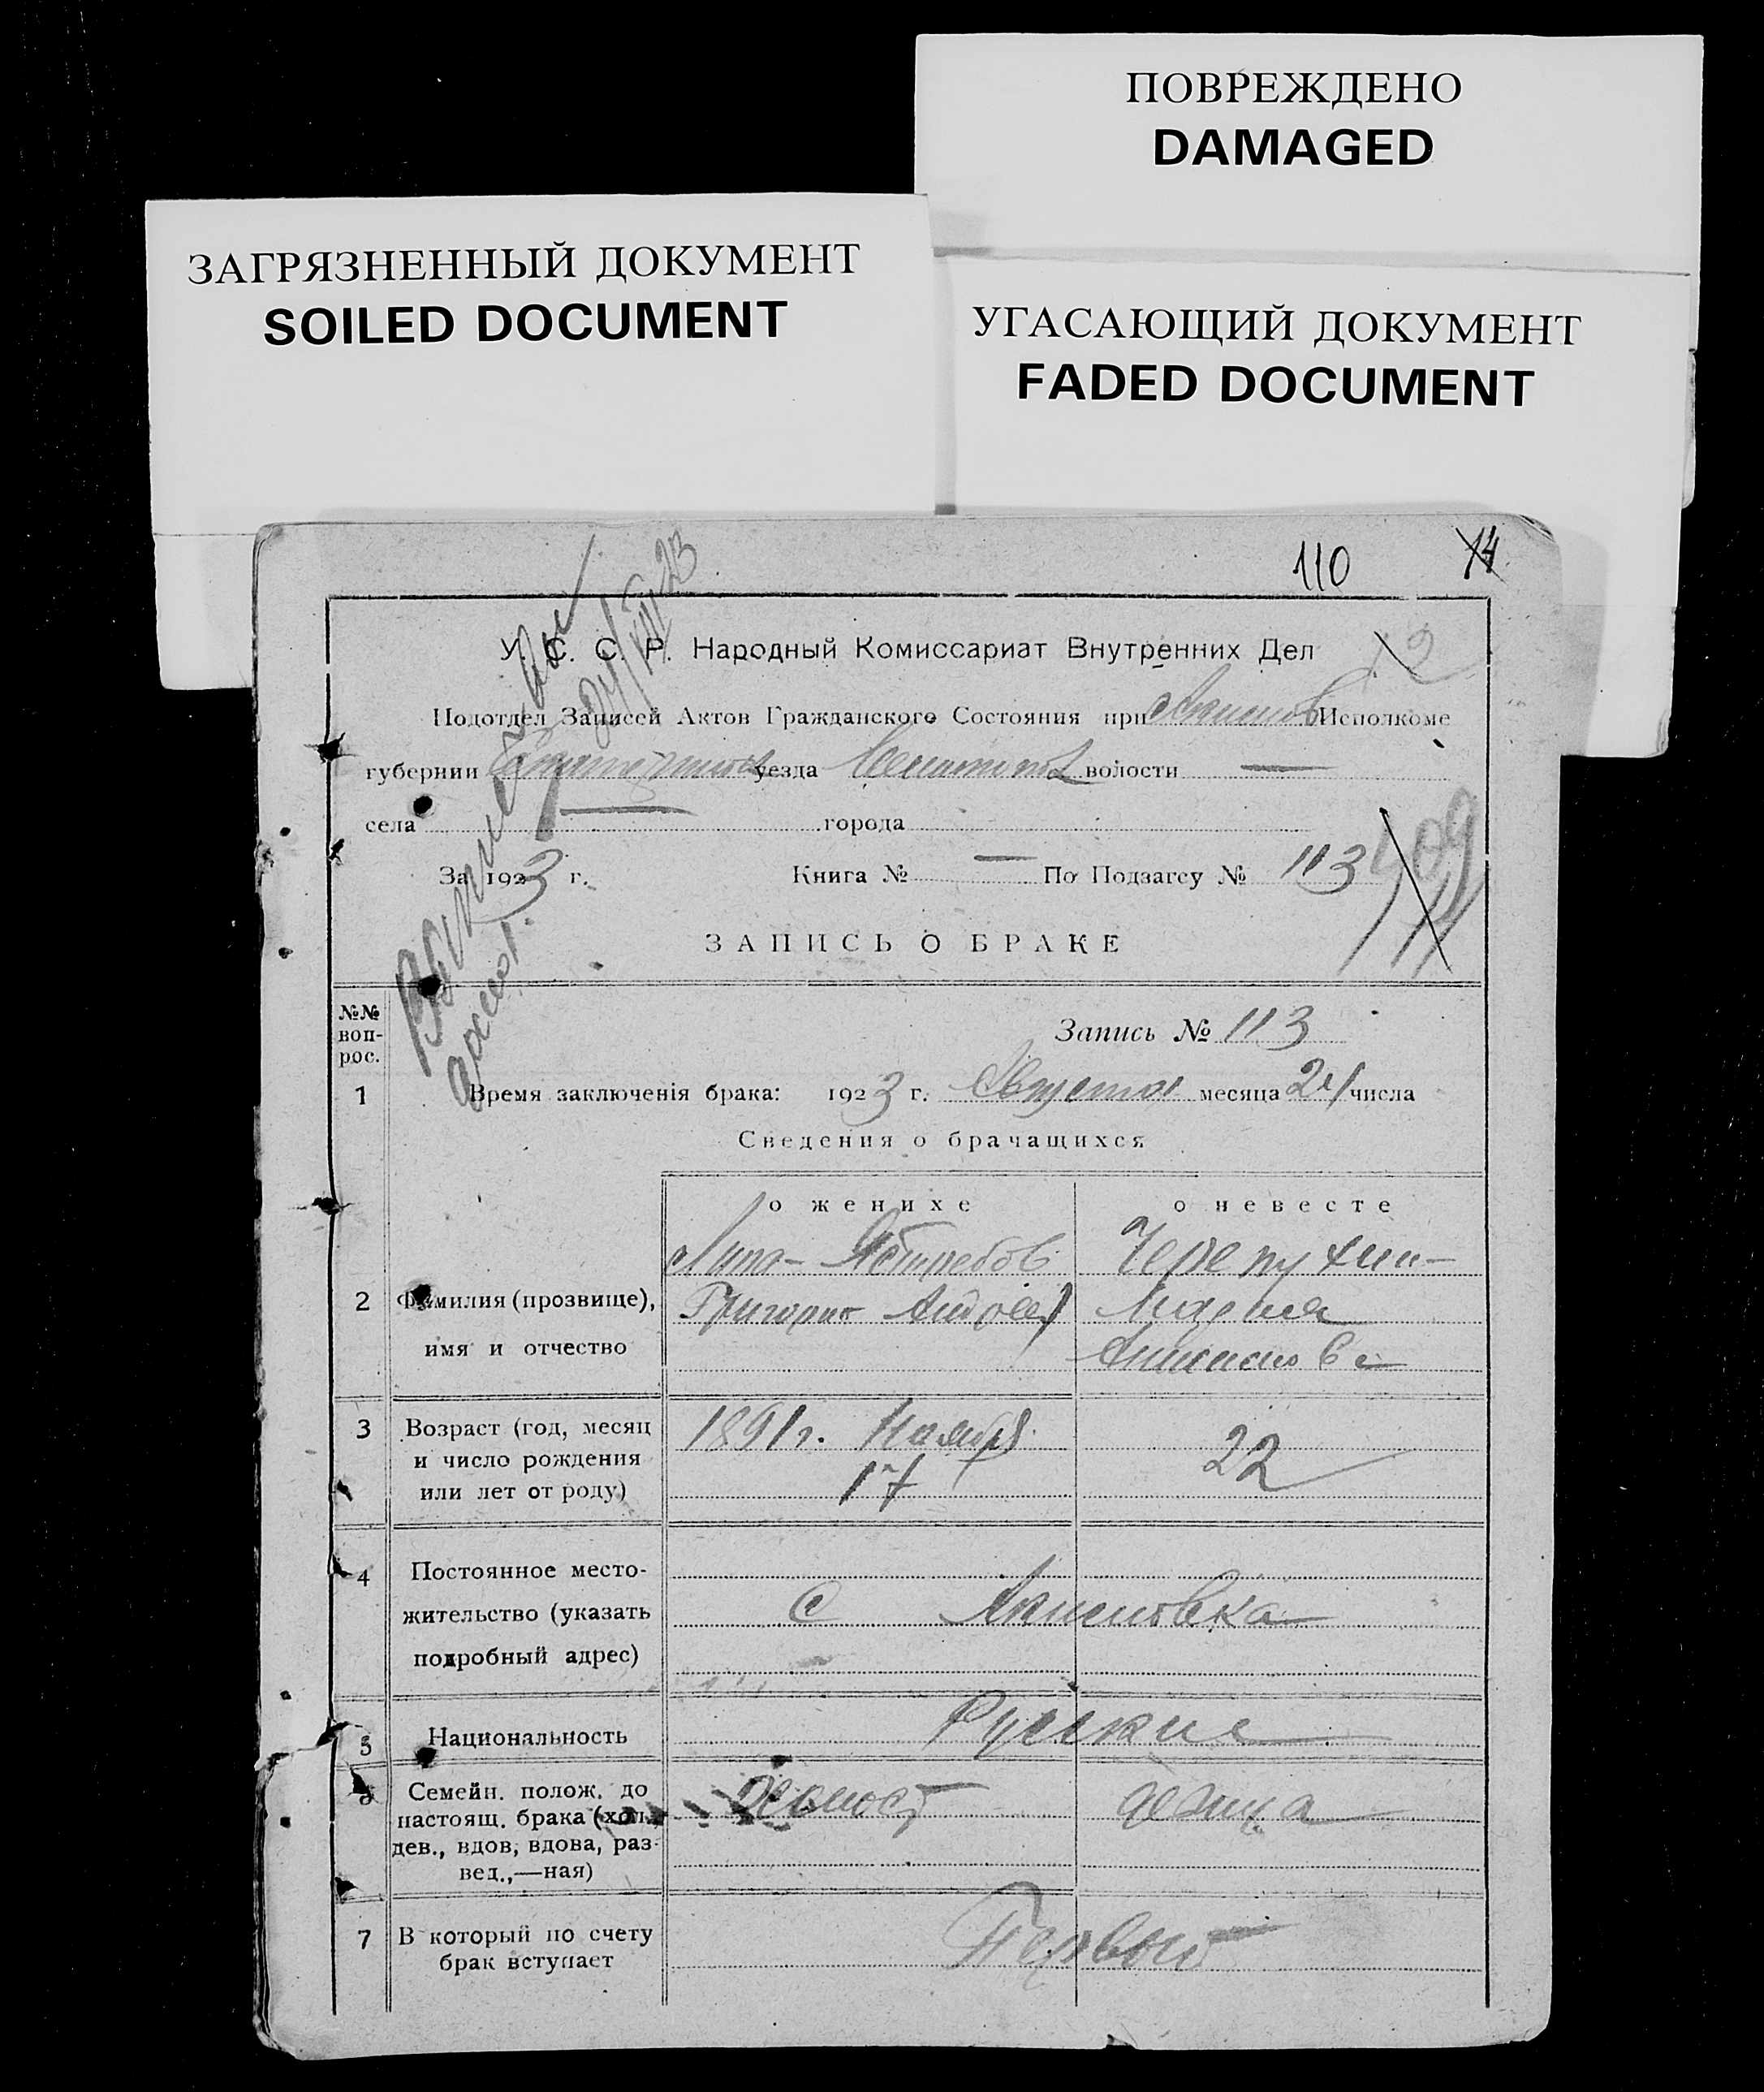 ПОВРЕЖДЕНО
DAMAGED
ЗАГРЯЗНЕННЫЙ ДОКУМЕНТ
SOILED DOCUMENT
УГАСАЮЩИЙ ДОКУМЕНТ
FADED DOCUMENT
110 14
У. С. С. Р. Народный Комиссариат Внутренних Дел 12
Подотдел Записей Актов Гражданского Состояния при Исполкоме
губернии уезда волости —
села — города
За 1923 г. Книга № — По Подзагсу № 113
109
ЗАПИСЬ О БРАКЕ
24/VIII 23
№№ вопрос.
Запись № 113
1 Время заключенія брака: 1923 г. Августа месяца 24 числа
Сведения о брачащихся
о женихе о невесте
2 Фамилия (прозвище), имя и отчество
Ястребов
Григорий Андреев
Черепухин-
Мария
3 Возраст (год, месяц и число рождения или лет от роду)
1891 г. Ноября
17
22
4 Постоянное местожительство (указать подробный адрес)
с Акимовка
5 Национальность
Русские
6 Семейн. полож. до настоящ. брака (хол., дев., вдов, вдова, развед.,—ная)
холост девица
7 В который по счету брак вступает
Первый